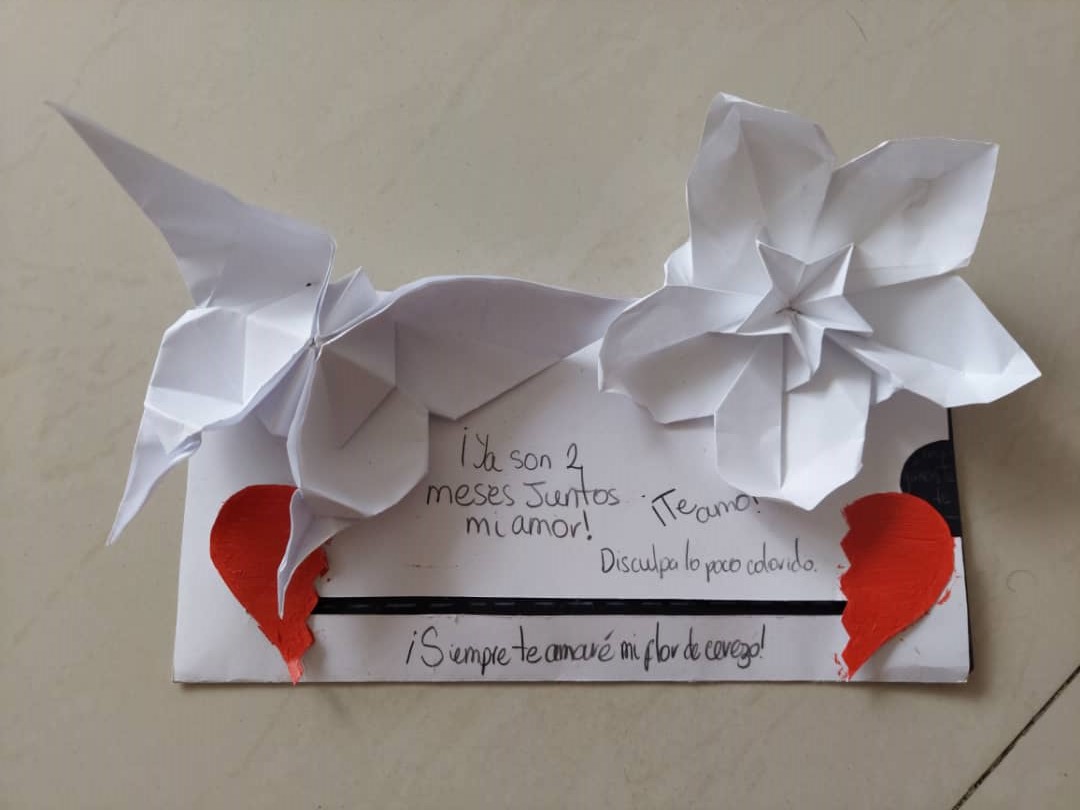 ¡Ya son 2
meses Juntos
mi amor!
¡Te amo!
Disculpa lo poco colorido.
¡Siempre te amaré mi flor de cerezo!